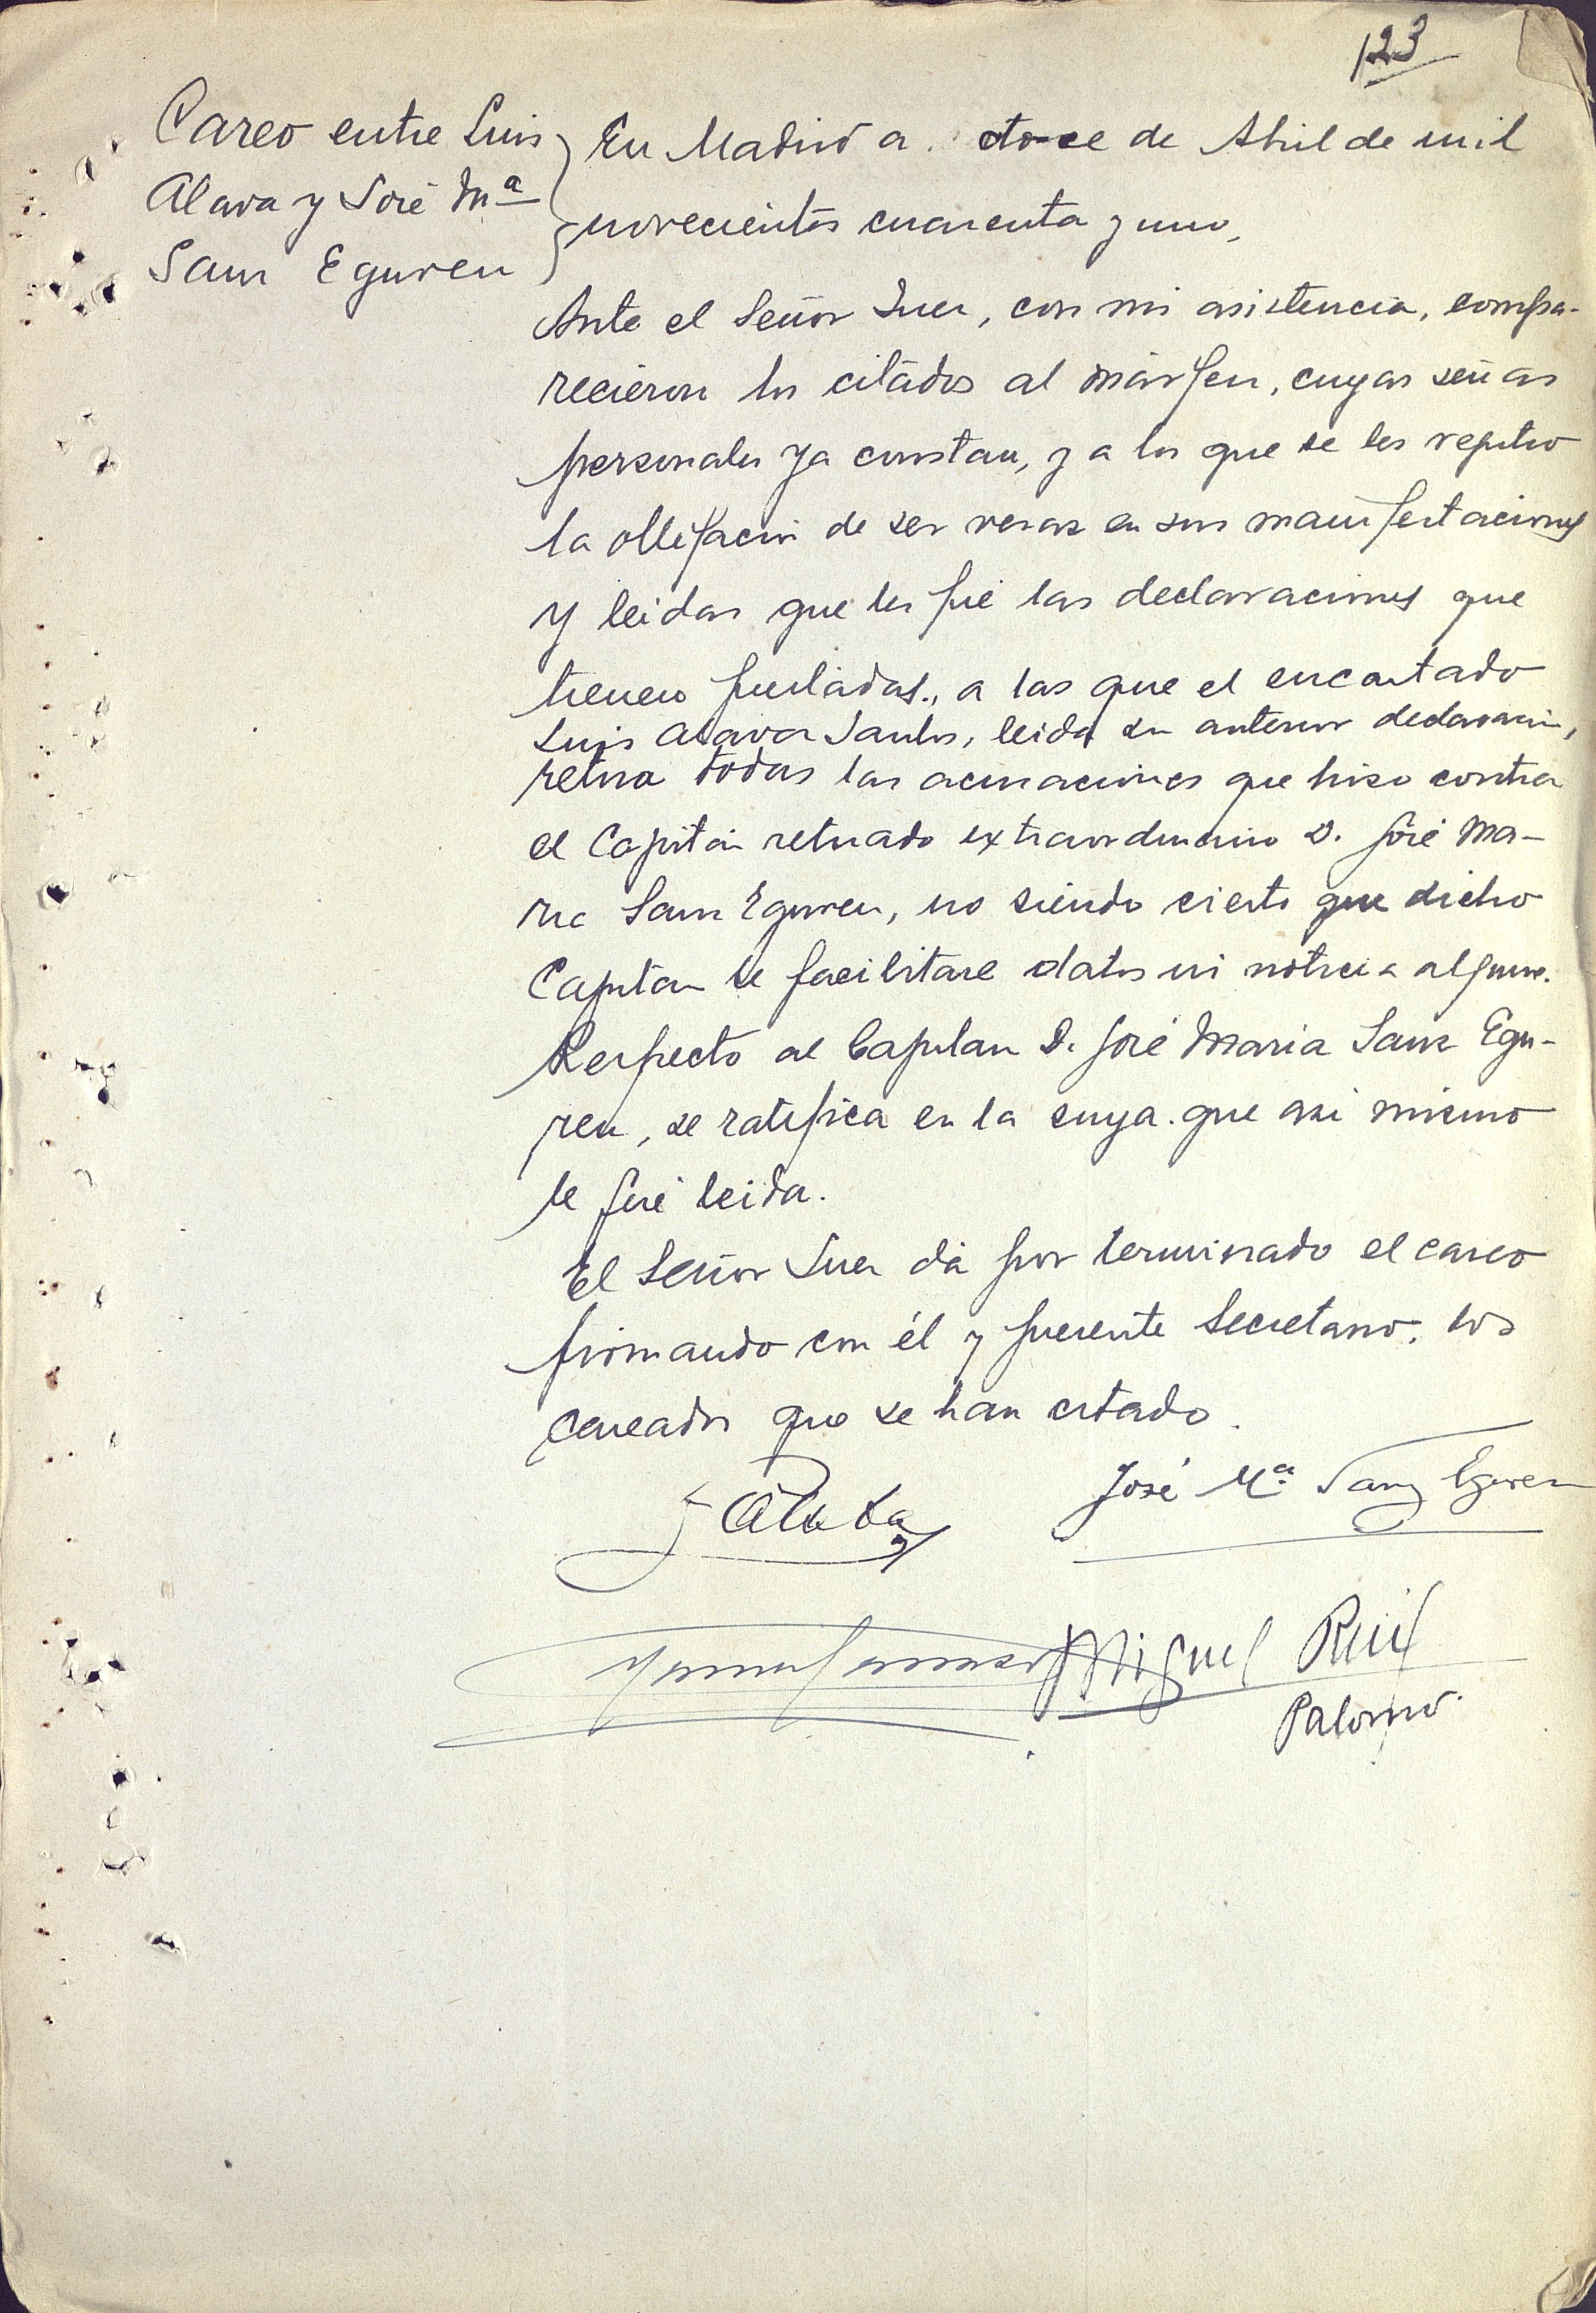 123
Careo entre Luis
Alava y José Mª
Sanz Eguren
En Madrid a. doce de Abril de mil
novecientos cuarenta y uno,
Ante el Señor Juez, con mi asistencia, compa-
recieron los citados al márgen, cuyas señas
personales ya constan, y a los que se les repitio
la obligación de ser veraz en sus manifestaciones
y leidas que les fué las declaraciones que
tienen prestadas., a las que el encartado
Luis Alava Santos, leida su anterior declaración,
retira todas las acusaciones que hizo contra
el Capitán retirado extraordinario D. José Ma-
ria Sanz Eguren, no siendo cierto que dicho
Capitán le facilitase datos ni noticia alguna.
Respecto al Capitan D. José Maria Sanz Egu-
ren, se ratifica en la suya. que asi mismo
le fué leida.
El Señor Juez dá por terminado el careo
firmando con él y presente Secretario, los
careados que se han citado.
L Alava
José Mª Sanz Eguren
Miguel Ruiz
Palomo.